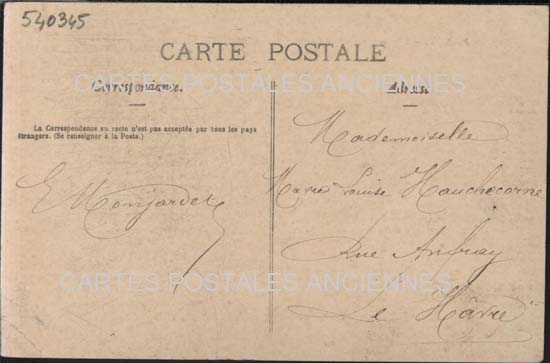 540345
CARTE POSTALE
CARTES POSTALES ANCIENNES
Correspondance.
Adresse
La Correspondance au recto n'est pas acceptée par tous les pays
étrangers. (Se renseigner à la Poste.)
Mademoiselle
Marie Louise Hauchecorne
E
Rue
Le Hâvre
CARTES POSTALES ANCIENNES